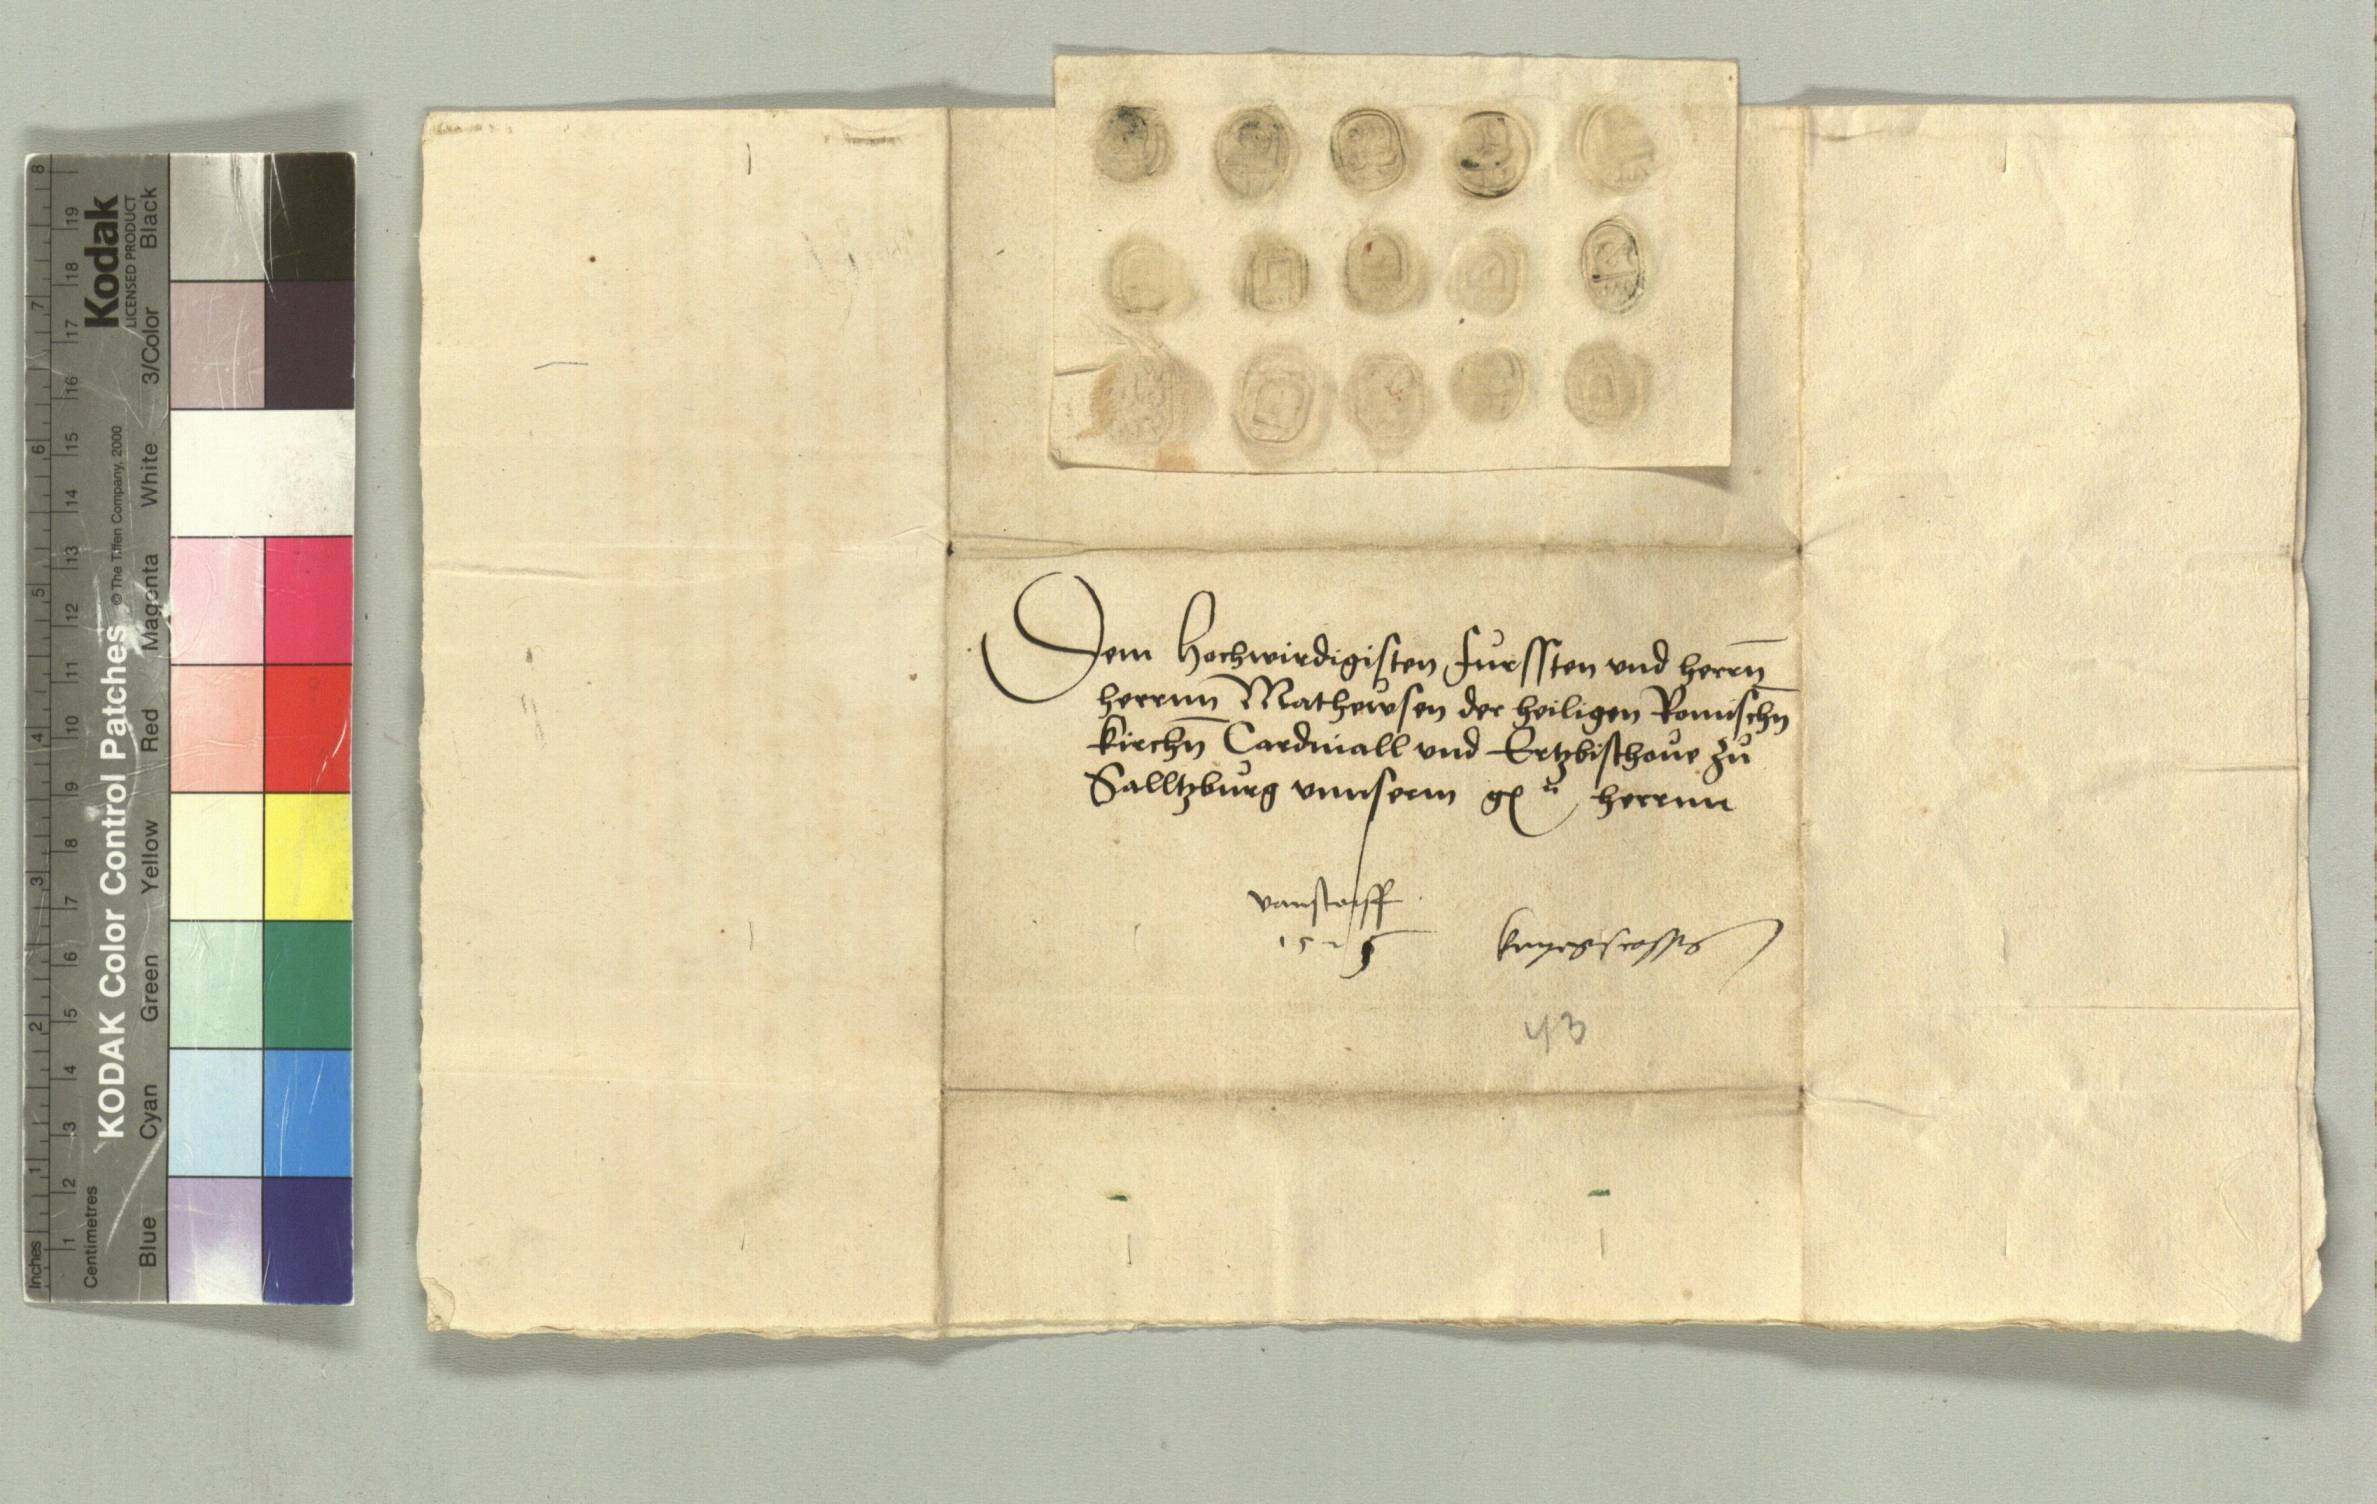 Dem Hochwirdigisten Furssten vnd herrn̄
herrnn Mathewsen der heiligen Romischn̄
kirchn̄ Cardinall vnd Ertzbischoue zu
Salltzburg vnnserm g herrnn
1525
43
KODAK Color Control Patches
Kodak
LICENSED PRODUCT
© The Tiffen Company, 2000
Inches 1 2 3 4 5 6 7 8
Centimetres 1 2 3 4 5 6 7 8 9 10 11 12 13 14 15 16 17 18 19
Blue Cyan Green Yellow Red Magenta White 3/Color Black